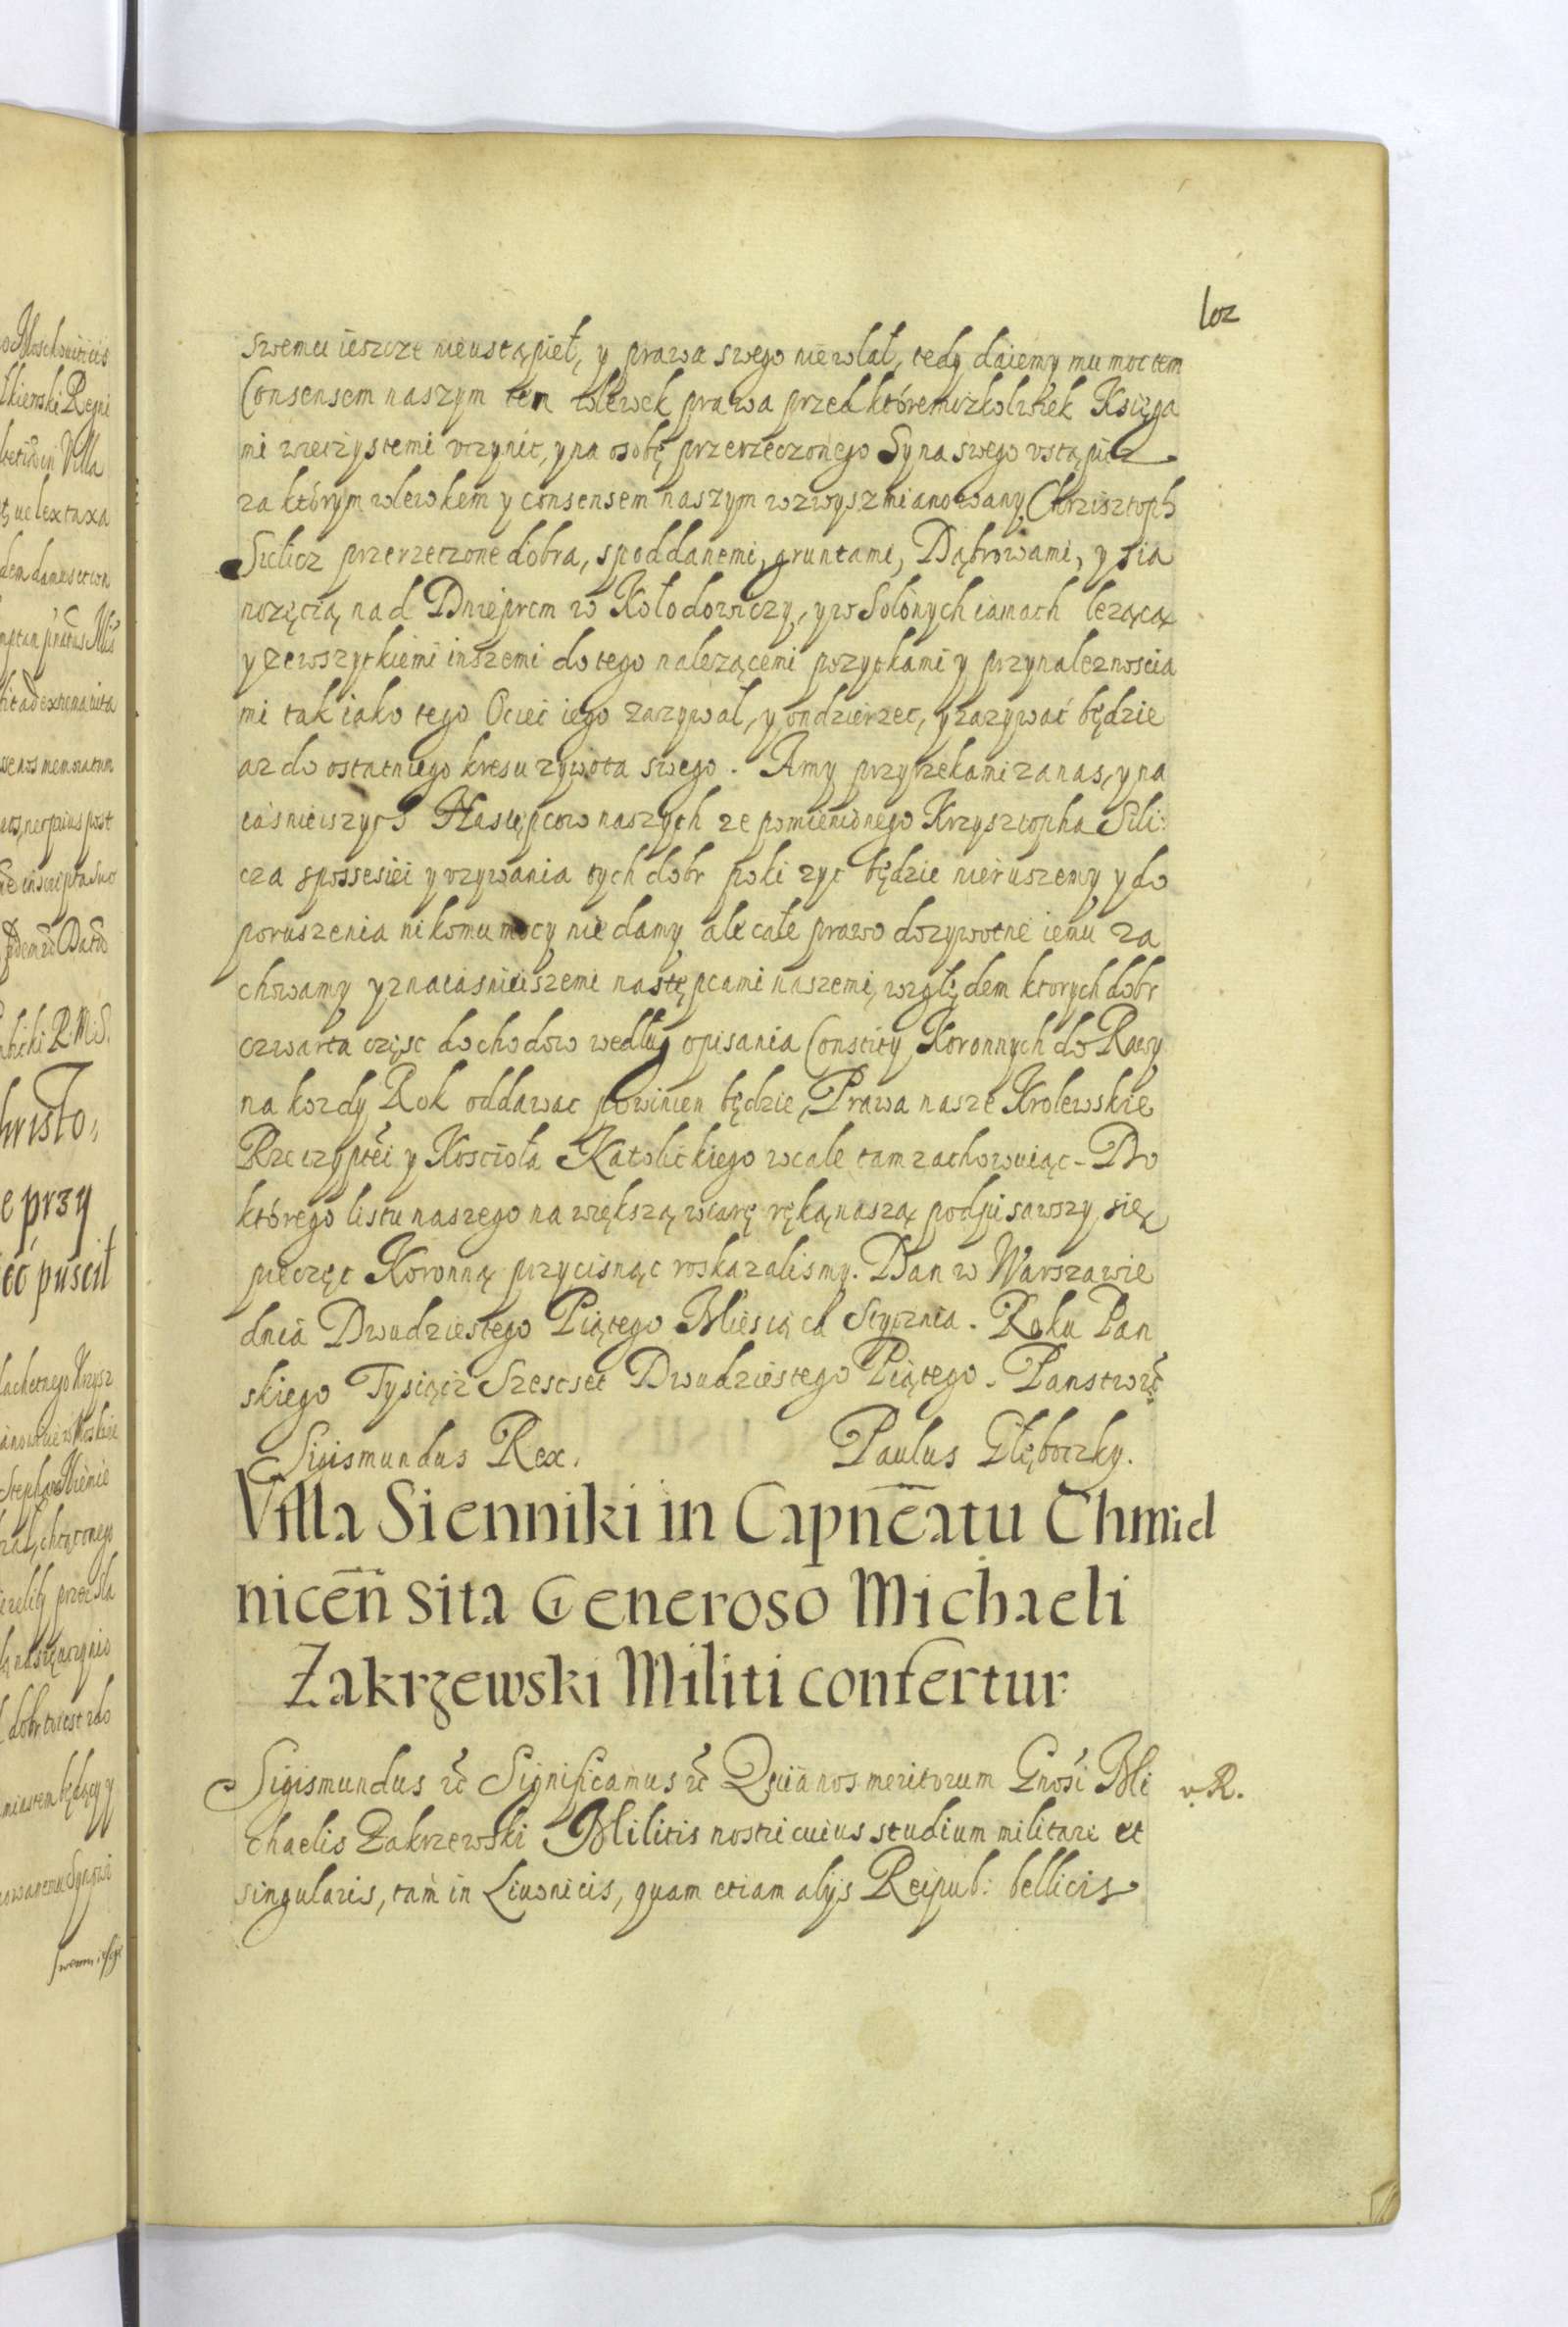 102
swemu ieszcze nieustąpieł, y prawa swego niewlał, tedy daiemy mu moc tem
Consensem naszym ten wlewek prawa przed któremiżkolwiek Księga
mi wieczystemi vczynic, y na osobę przerzeczonego Syna swego vstąpic
za którym wlewkem y consensem naszym wzwyszmianowany Chrzisztoph
Silicz przerzeczone dobra, spoddanemi, gruntami, Dąbrowami, y sia
nozęcią nad Dnieprem w Kołodowiczy, y w Solonych iamach lezącą
y zewszytkiemi inszemi do tego nalezącemi pozytkami y przynaleznoscia
mi tak iako tego Ociec iego zazywał, y on dzierzec, y zazywać będzie
az do ostatniego kresu zywota swego. Amy przyrzekami za nas, y na
iasnieiszych Następcow naszych ze pomienionego Krzysztopha Sili:
cza spossesiei y vzywania tych dobr poki zyc będzie nieruszemy y do
poruszenia nikomu mocy nie damy ale całe prawo dozywotne iemu za
chowamy y znaiasnieiszemi następcami naszemi, względem ktorych dobr
czwarta częsc dochodow według opisania Constity Koronnych do Rawy
na kozdy Rok oddawac powinien będzie, Prawa nasze Krolewskie
Rzeczyptei y Kościoła Katolickiego wcale tam zachowuiąc - Do
którego listu naszego na większą wiarę ręką naszą podpisawszy się
pieczęc Koronną przycisnąc roskazalismy. Dan w Warszawie
dnia Dwudziestego Piątego Miesiąca Stycznia. Roku Pan
skiego Tysiącz Szescset Dwudziestego Piątego. Panstw &c
Sigismundus Rex. Paulus Głęboczky.
Villa Sienniki in Capnēatu Chmiel
nicēn sita Generoso Michaeli
Zakrzewski Militi confertur
Sigismundus &c Significamus &c Quia nos meritorum Gnosi Mi
v. R.
chaelis Zakrzewski Militis nostri cuius studium militare et
singularis, tam in Livonicis, quam etiam alijs Reipub: bellicis